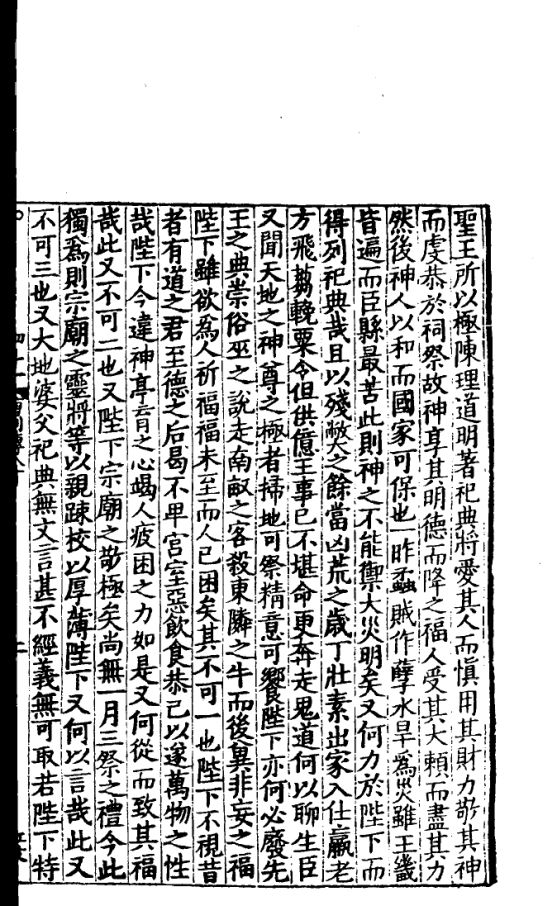 聖王所以極陳理道明著祀典將愛其人而慎用其財力敬其神
而虔恭於祠祭故神享其明德而降之福人受其大賴而盡其力
然後神人以和而國家可保也昨蟊賊作孽水旱為災雖王畿
皆遍而臣縣最苦此則神之不能禦大災明矣又何力於陛下而
得列祀典哉且以殘獘之餘當凶荒之歲丁壯素出家入仕羸老
方飛蒭輓粟今但供億王事已不堪命更奔走鬼道何以聊生臣
又聞天地之神尊之極者掃地可祭精意可饗陛下亦何必廢先
王之典崇俗巫之說走南畝之客殺東隣之牛而後冀非妄之福
陛下雖欲為人祈福福未至而人已困矣其不可一也陛下不視昔
者有道之君至德之后曷不卑宮室惡飲食恭己以遂萬物之性
哉陛下今違神亭育之心竭人疲困之力如是又何從而致其福
哉此又不可二也又陛下宗廟之敬極矣尚無一月三祭之禮今此
獨為則宗廟之靈將等以親踈校以厚薄陛下又何以言哉此又
不可三也又大地婆父祀典無文言甚不經義無可取若陛下特